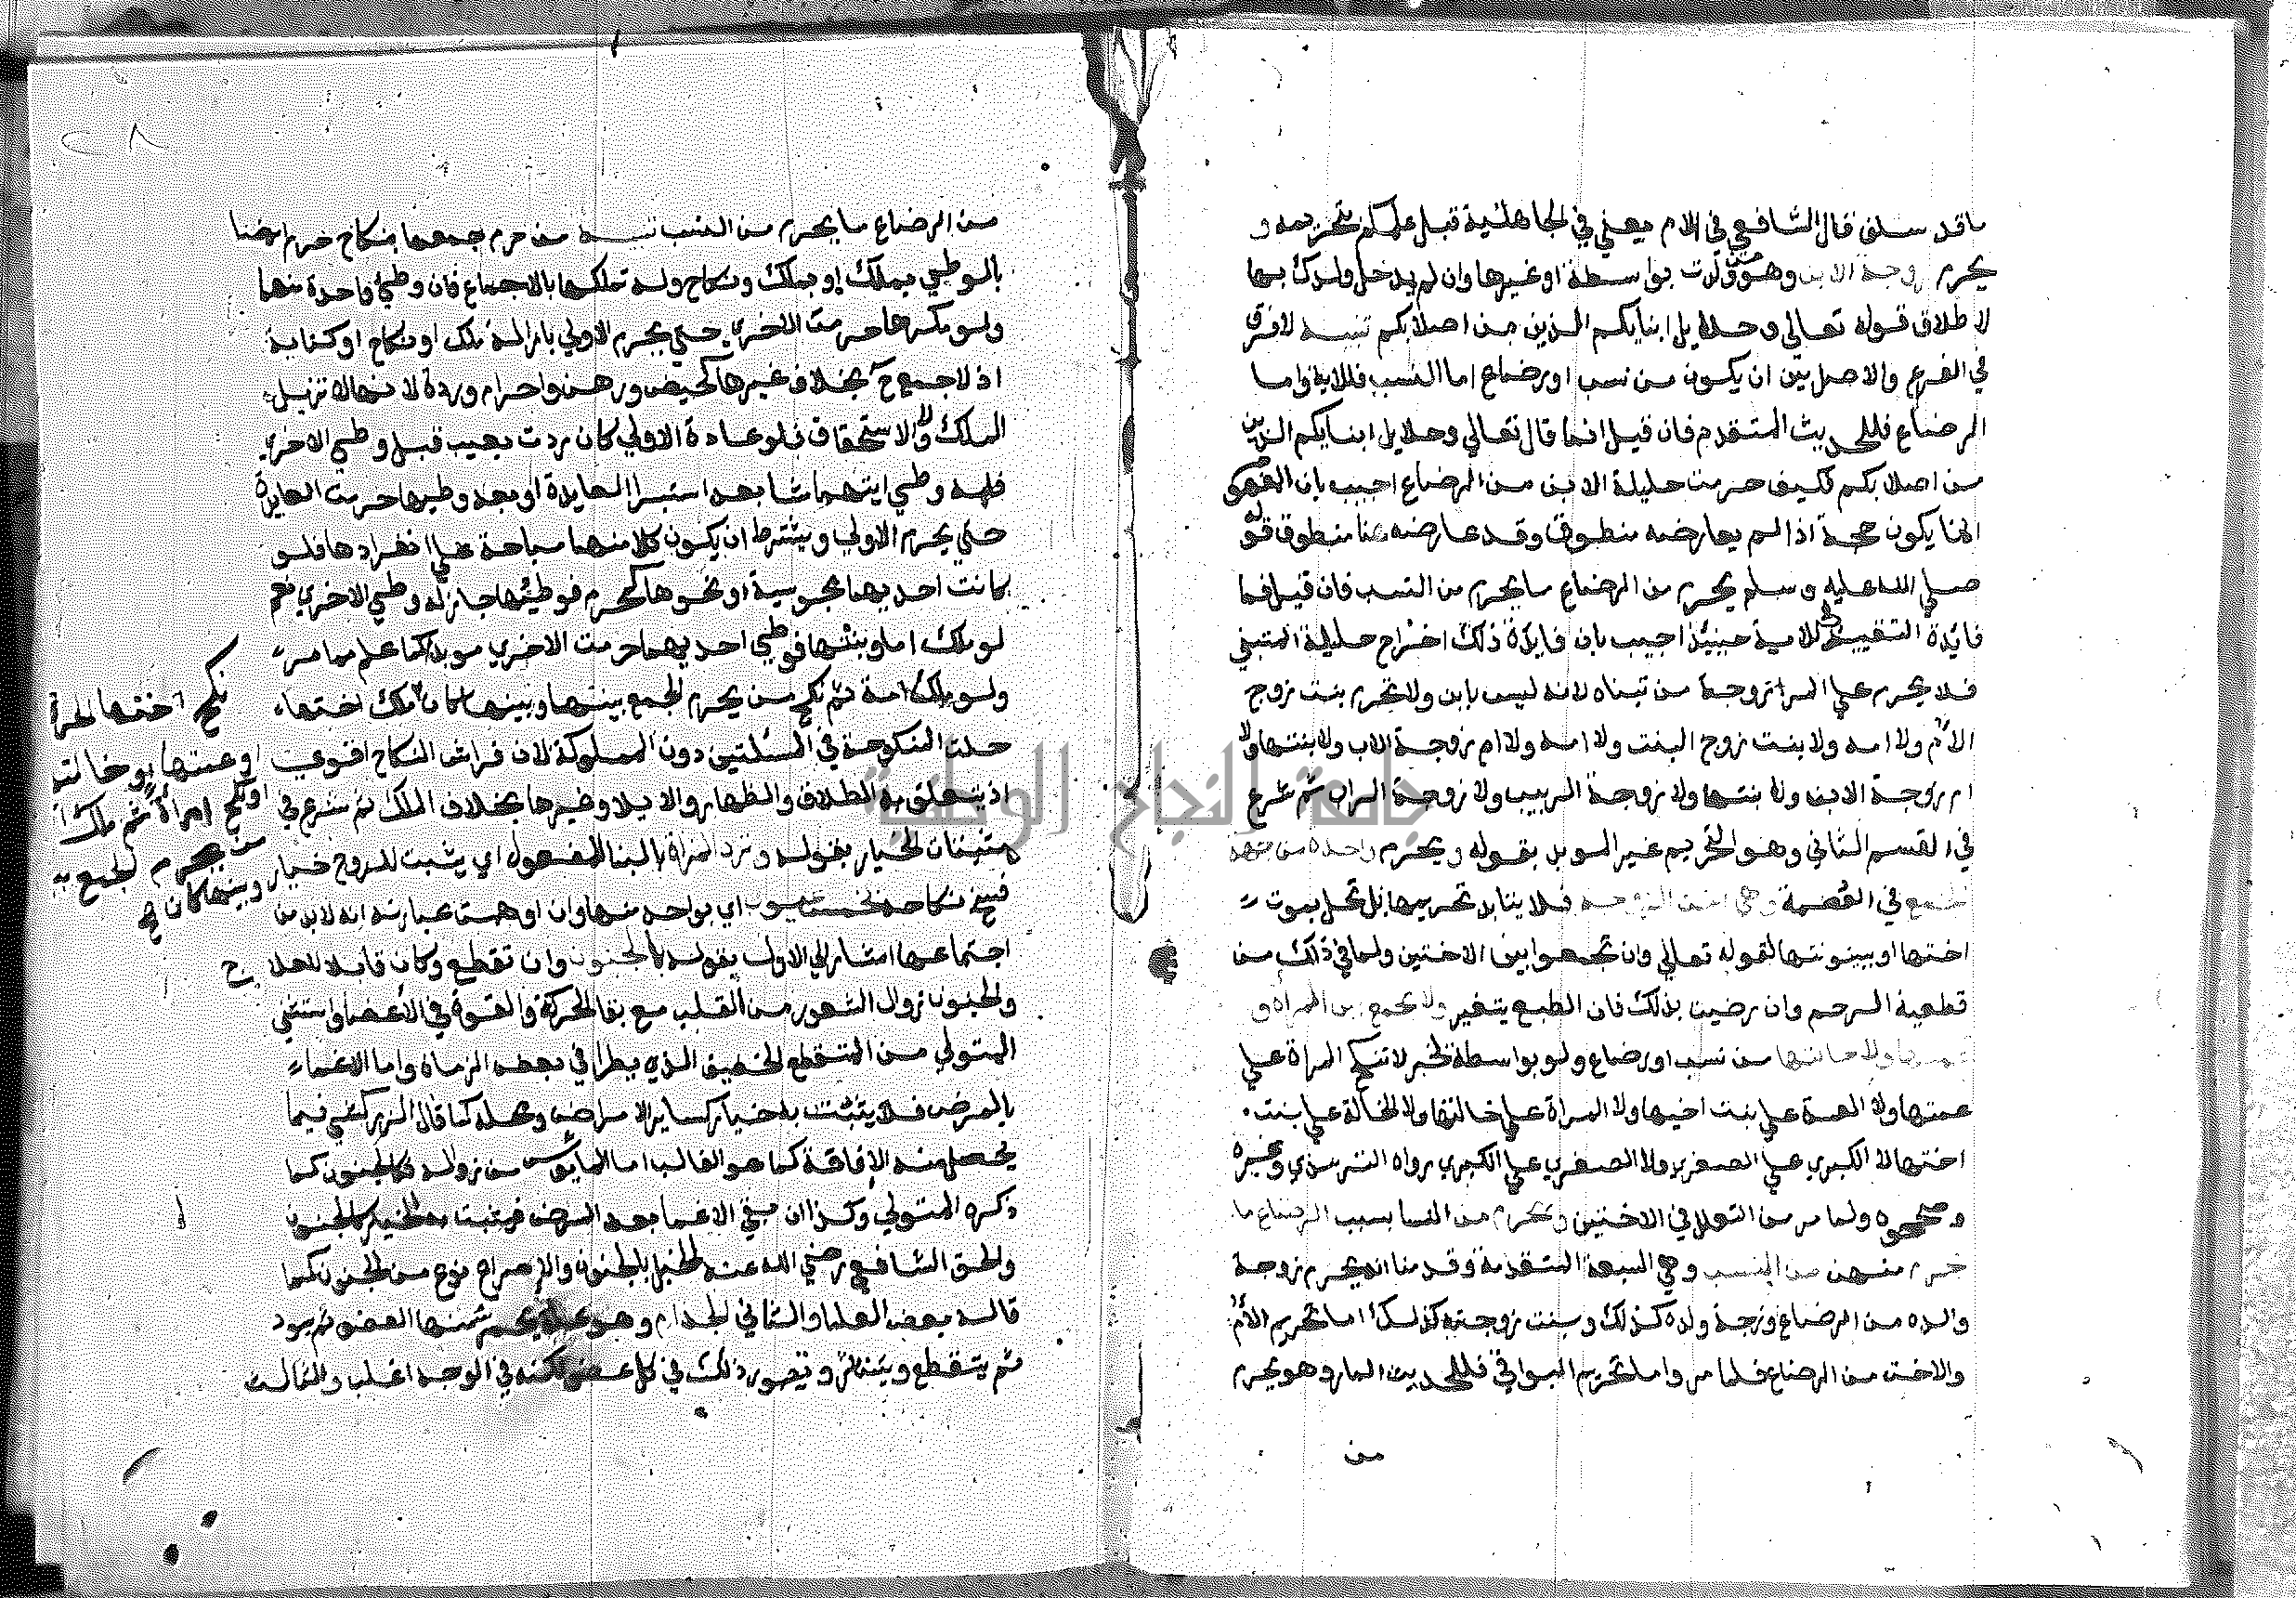 ما قد سلف قال الشافعي في الام يعني في الجاهلية قبل علمكم بتحريمه و
يحرم زوجة الابن وهو من ولدت بواسطة او غيرها وان لم يدخل ولدك بها
لاطلاق قوله تعالي وحلايل ابنايكم الذين من اصلابكم تنبيه لا فرق
في الفرع والاصل بين ان يكون من نسب او رضاع اما النسب فللاية واما
الرضاع فللحديث المتقدم فان قيل انما قال تعالي وحلايل ابنايكم الذين
من اصلابكم فكيف حرمت حليلة الابن من الرضاع اجيب بان المفهوم
انما يكون حجة اذا لم يعارضه منطوق وقد عارضه هنا منطوق قوله
صلي الله عليه وسلم يحرم من الرضاع ما يحرم من النسب فان قيل فما
فايدة التقييد في الاية حينئذ اجيب بان فايدة ذلك اخراج حليلة المتبني
فلا يحرم علي المرا زوجة من تبناه لانه ليس بابن ولا تحرم بنت زوج
الام ولا امه ولا بنت زوج البنت ولا امه ولا ام زوجة الاب ولا بنتها ولا
ام زوجة الابن ولا بنتها ولا زوجة الربيب ولا زوجة الراب ثم شرع
في القسم الثاني وهو التحريم غير الموبد بقوله ويحرم واحدة من جهة
الجمع في العصمة وهي اخت الزوجة فلا يتابد تحريمها بل تحل بموت
اختها او بينونتها لقوله تعالي وان تجمعوا بين الاختين ولما في ذلك من
قطعية الرحم وان رضيت بذلك فان الطبع يتغير ولا يجمع بين المراة و
عمتها ولا خالتها من نسب او رضاع ولو بواسطة لخبر لا تنكح المراة علي
عمتها ولا العمة علي بنت اخيها ولا المراة علي خالتها ولا الخالة علي بنت
اختها لا الكبري علي الصغري ولا الصغري علي الكبري رواه الترمذي وغيره
وصححوه ولما مر من التعليل في الاختين ويحرم من النسا بسبب الرضاع ما
حرم منهن من النسب وهي السبعة المتقدمة وقدمنا انه يحرم زوجة
والده من الرضاع وزوجة ولده كذلك وبنت زوجته كذلك اما تحريم الام
والاخت من الرضاع فلما مر واما تحريم البواقي فللحديث المار وهو يحرم
من
من الرضاع ما يحرم من النسب تنبيه من حرم جمعهما بنكاح حرم ايضا
بالوطي بملك او بملك ونكاح وله تملكها بالاجماع فان وطئ واحدة منهما
ولو مكرها حرمت الاخري حتي يحرم الاولي بازالة ملك او نكاح او كتابة
اذ لا جمع ح بخلاف غيرها كحيض ورهن واحرام وردة لانها لا تزيل
الملك ولا الاستحقاق فلو عادة الاولي كان ردت بعيب قبل وطي الاخري
فله وطي ايتهما شا بعد استبرا العايدة او بعد وطيها حرمت العايدة
حتي يحرم الاولي ويشترط ان يكون كلا منهما مباحة علي انفرادها فلو
كانت احديهما مجوسية او نحوها كمحرم فوطئها جاز له وطي الاخري نعم
لو ملك اما وبنتها فوطي احديهما حرمت الاخري موبدا كما علم مما مر
ولو ملك امة ثم نكح من يحرم الجمع بينها وبينها كان ملك اختها
حلت المنكوحة في المسئلتين دون المملوكة لان فراش النكاح اقوي
اذ يتعلق به الطلاق والظهار والايلا وغيرها بخلاف الملك ثم شرع في
مثبتات الخيار بقوله وترد المراة بالبنا للمفعول اي يثبت للزوج خيار
فسخ نكاحه بخمسة عيوب اي بواحد منها وان اوهمت عبارته انه لابد من
اجتماعها اشار الي الاول بقوله بالجنون وان تقطع وكان قابلا للعلاج
والجنون زوال الشعور من القلب مع بقا الحركة والقوة في الاعضا واستثني
المتولي من المتقطع الخفيف الذي يطرا في بعض الزمان واما الاغماء
بالمرض فلا يثبت به خيار كساير الامراض ومحله كما قال الزركشي فيما
يحصل منه الافاقة كما هو الغالب اما المايوس من زواله فكالجنون كما
ذكره المتولي وكذا ان بقي الاغما بعد المرض فيثبت به الخيار كالجنون
والحق الشافعي رضي الله عنه الخبل بالجنون والاصراع نوع من الجنون كما
قاله بعض العلما والثاني الجذام وهو علة يحمر منها العضو ثم يسود
ثم يتقطع ويتناثر ويتصور ذلك في كل عضو لكنه في الوجه اغلب والثالث
نكح اختها الحرة
او عمتها او خالتها
او نكح امراة ثم ملك
من يحرم الجمع بينه
وبينها كان